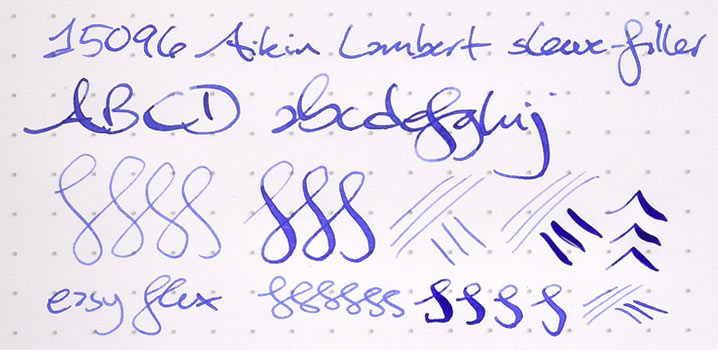 15096 Aikin Lambert sleeve-filler
ABCD abcdefghij
easy flex